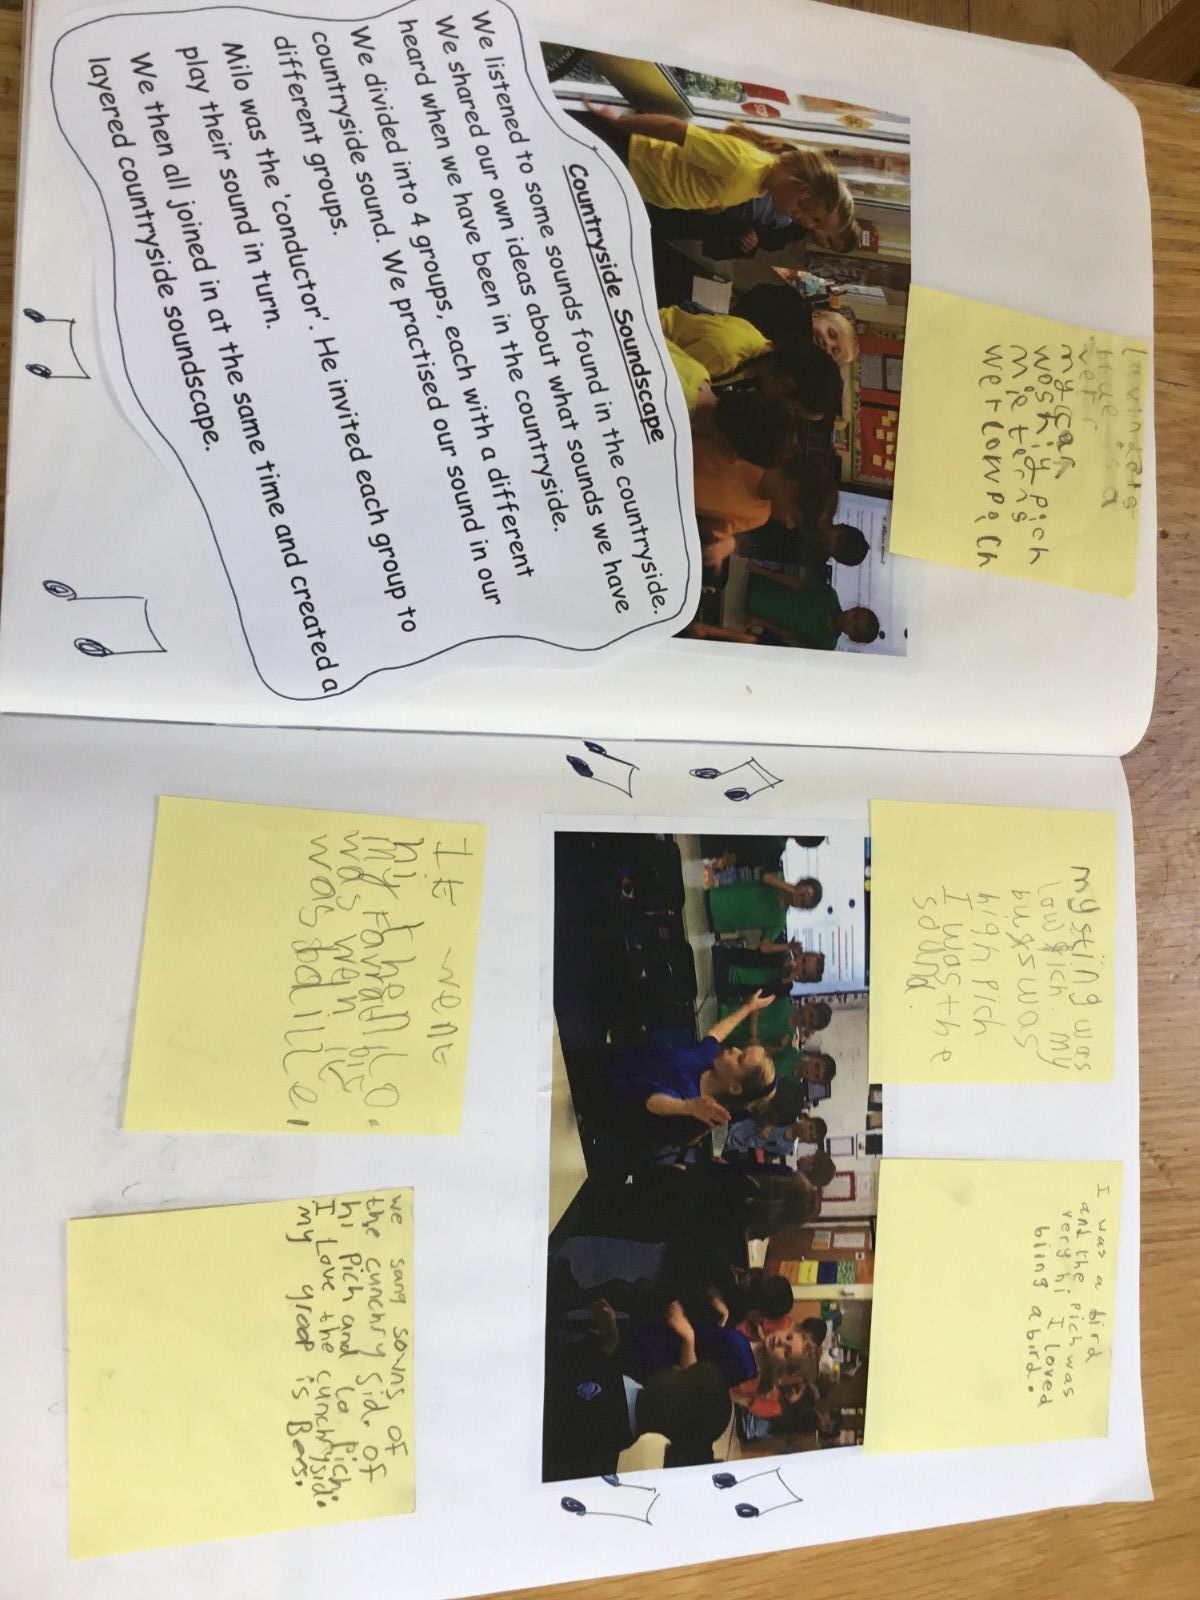 Countryside Soundscape
We listened to some sounds found in the countryside.
We shared our own ideas about what sounds we have
heard when we have been in the countryside.
We divided into 4 groups, each with a different
countryside sound. We practised our sound in our
different groups.
Milo was the 'conductor'. He invited each group to
play their sound in turn.
We then all joined in at the same time and created a
layered countryside soundscape.
my car
wos hiy pich
werlowpich
my sting was
low pich. my
high pich
I was the
I was a bird
and the pich was
very hi I loved
biing a bird.
It went
was
we sang sowns of
the cunchry sid. of
hi pich and lo pich.
I Love the cunchrysid.
my groop is Bees.